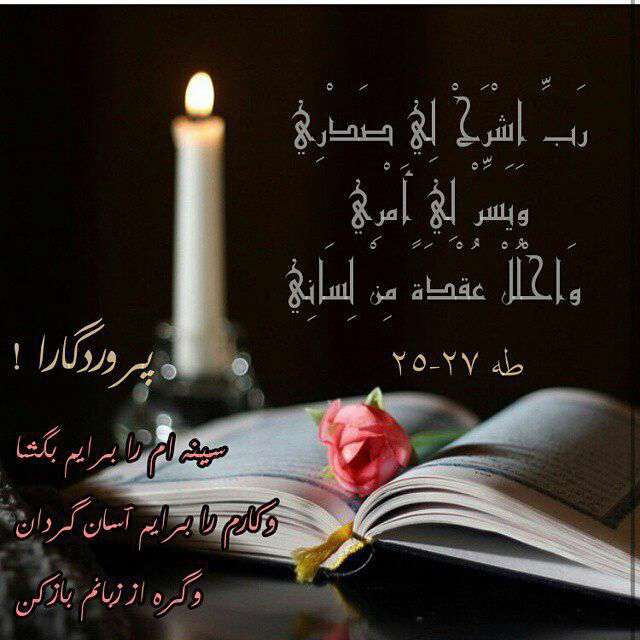 رَبِّ اِشْرَحْ لِي صَدْرِي
وَيَسِّرْ لِي أَمْرِي
وَاحْلُلْ عُقْدَةً مِنْ لِسَانِي
طه ٢٧-٢٥
پروردگارا !
سینه ام را برایم بگشا
وکارم را برایم آسان گردان
وگره از زبانم بازکن